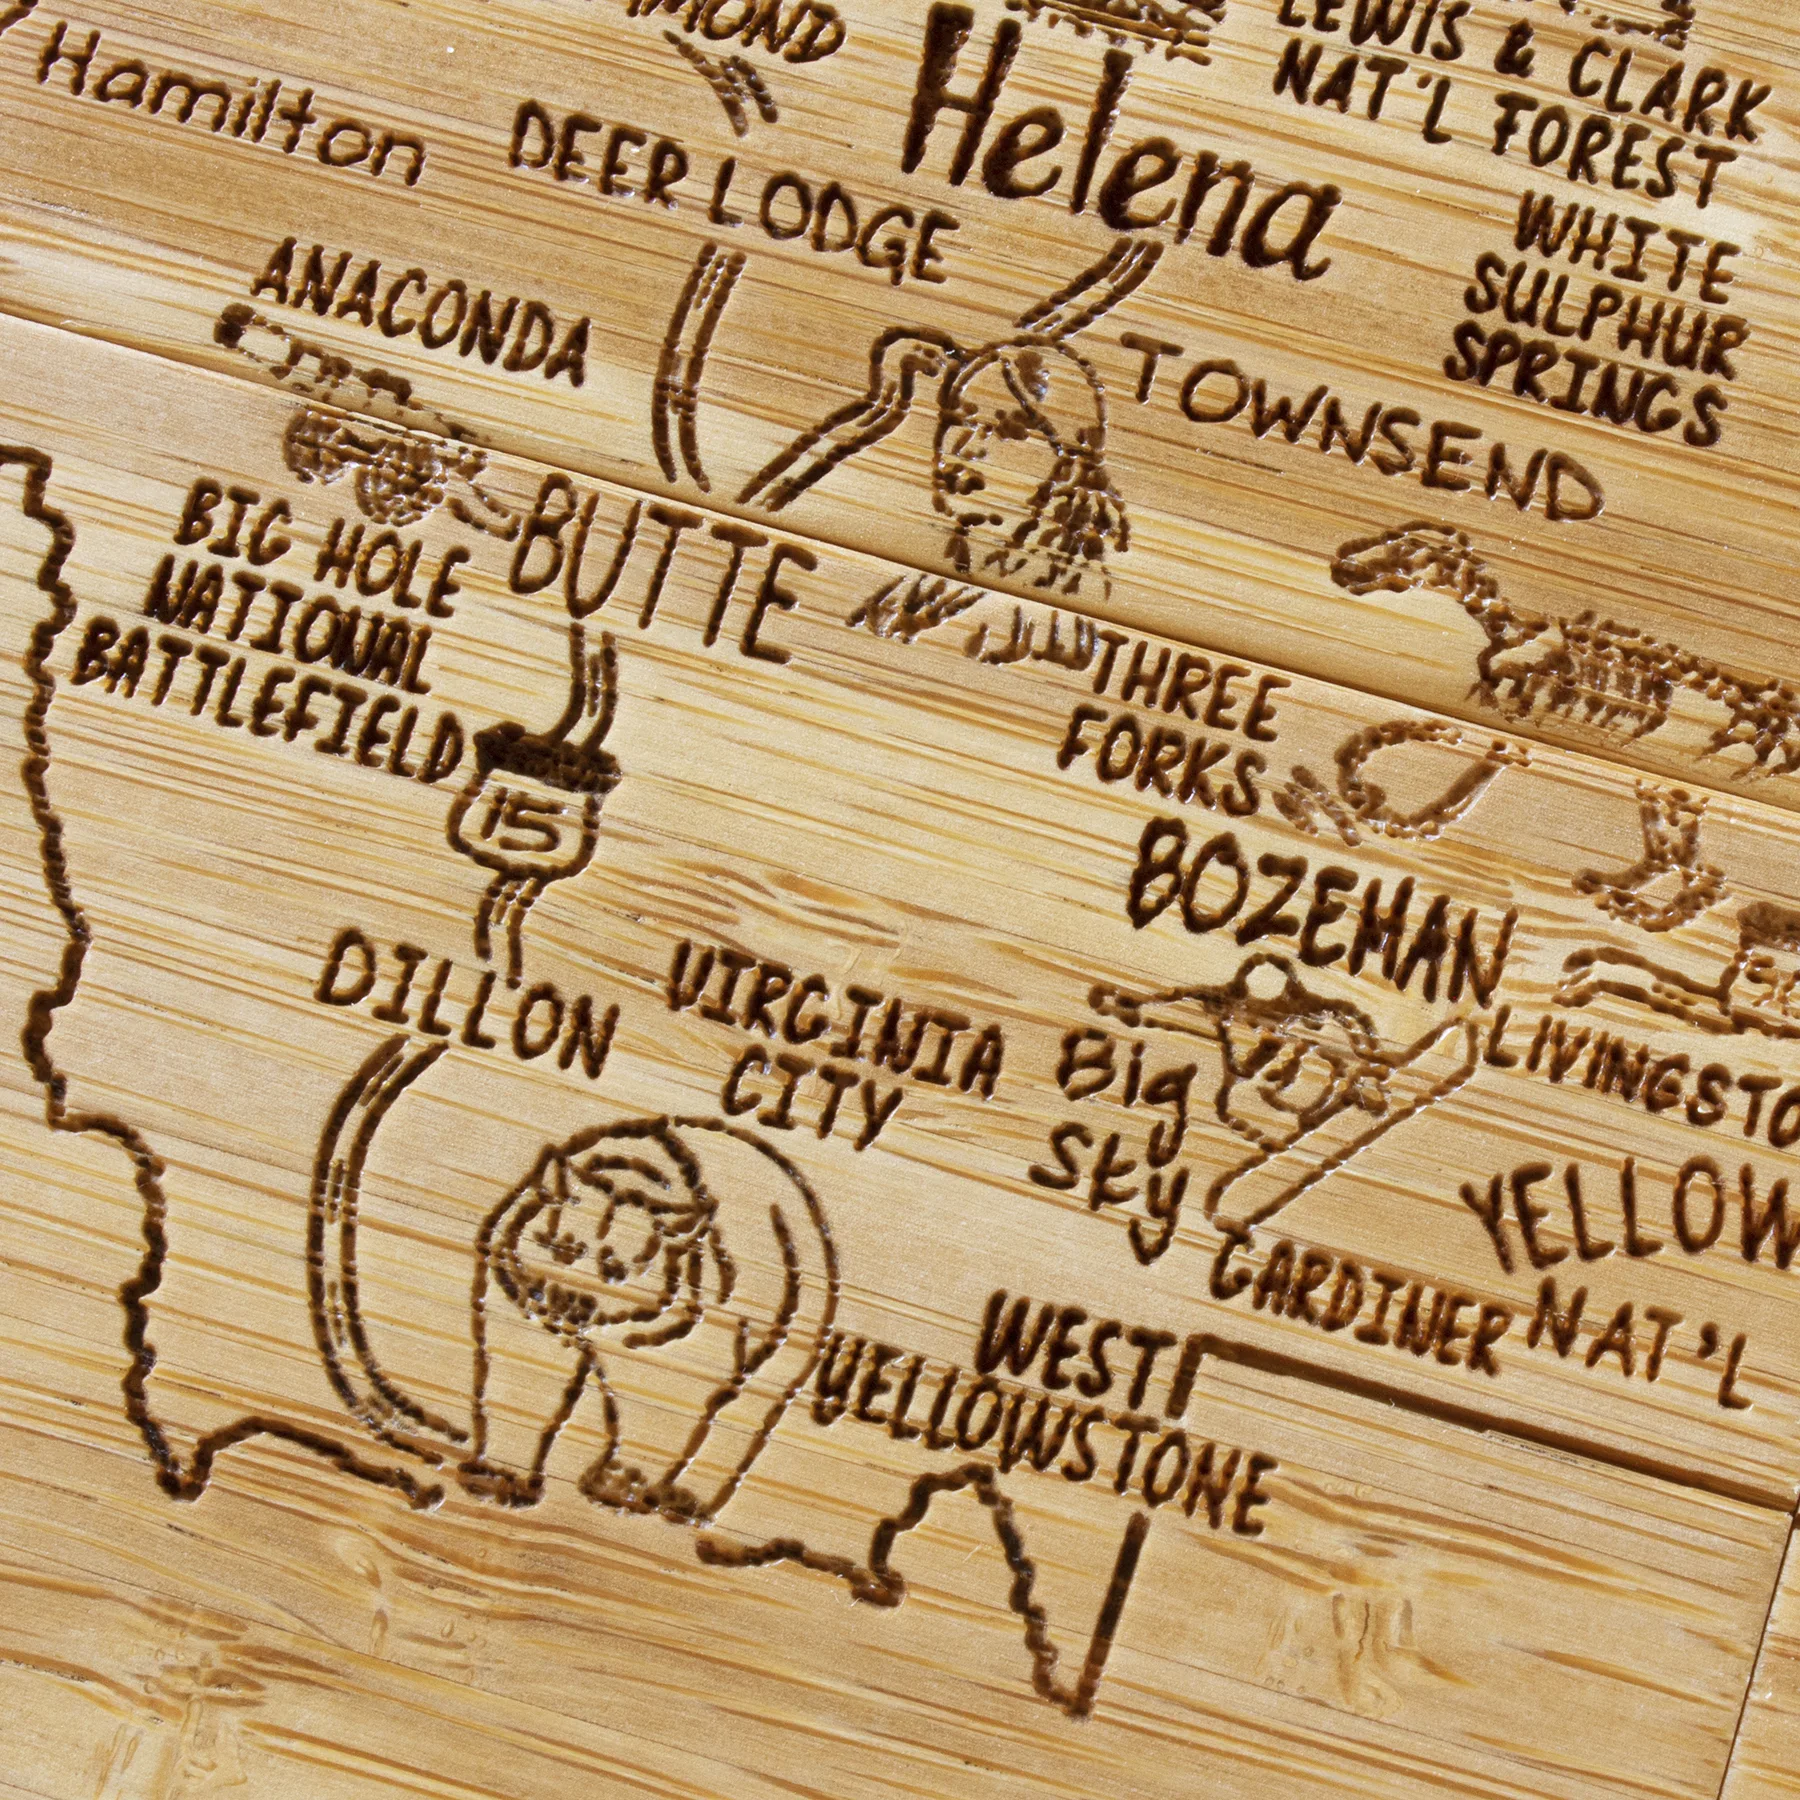 Hamilton
DEER LODGE
Helena
LEWIS & CLARK
NAT'L FOREST
WHITE
SULPHUR
SPRINGS
ANACONDA
TOWNSEND
BIG HOLE
NATIONAL
BATTLEFIELD
BUTTE
15
THREE
FORKS
BOZEMAN
DILLON
VIRGINIA
CITY
Big
Sky
GARDINER
NAT'L
WEST
YELLOWSTONE